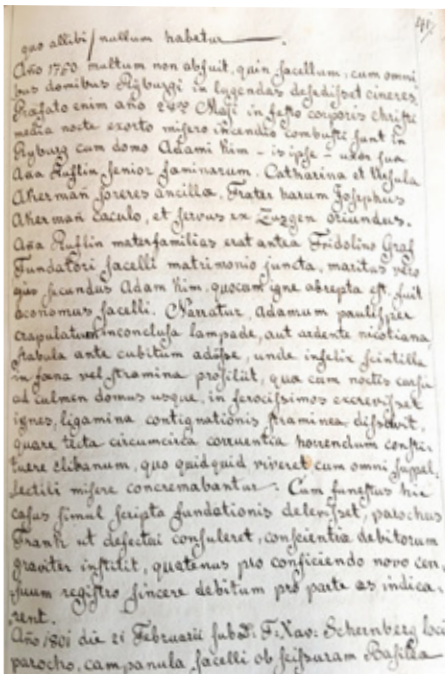 quo allibi nullum habetur.
Año 1760 multum non abfuit, quin sacellum, cum omni
bus domibus Rÿburgi in lygendas desedisset cineres,
Præfato enim año Maji in festo corporis christi
media nocte exorto misero incendio combusti sunt in
Rÿburg cum domo Adami Kim - is ipse - uxor sua
Aña Ruflin senior faminarum, Catharina et Ursula
Akermañ sorores ancilla, Frater harum Josephus
Akermañ caculo, et servus ex Zuzgen oriundus.
Aña Ruflin materfamilias erat antea Fridolino Graf
Fundatori sacelli matrimonio juncta, maritus vero
ejus secundus Adam Kim, quocum igne abrepta est, fuit
œconomus sacelli. Narratur, Adamum paulisper
crapulatum inconclusa lampade, aut ardente nicotiana,
stabula ante cubitum adiisse, unde infelix scintilla
in fæna vel stramina prosiliit, qua cum noctis
ad culmen domus usque, in ferocissimos excrevisset
ignes, ligamina contignationis straminea dissolvit,
quare tecta circumcirca corruentia horrendum consti-
tuere clibanum, quo quidquid viveret cum omni suppel-
lectili misere concremabantur. Cum funestus hic
casus simul scripta fundationis delevisset, parochus
Frank ut defectui consuleret, conscientia debitorum
graviter institit, quatenus pro conficiendo novo cen-
suum registro sincere debitum pro parte as indica-
rent.
Año 1801 die 21 Februarii sub D. F: Xav: Schernberg loci
parocho, campanula sacelli ob scissuram Basilea